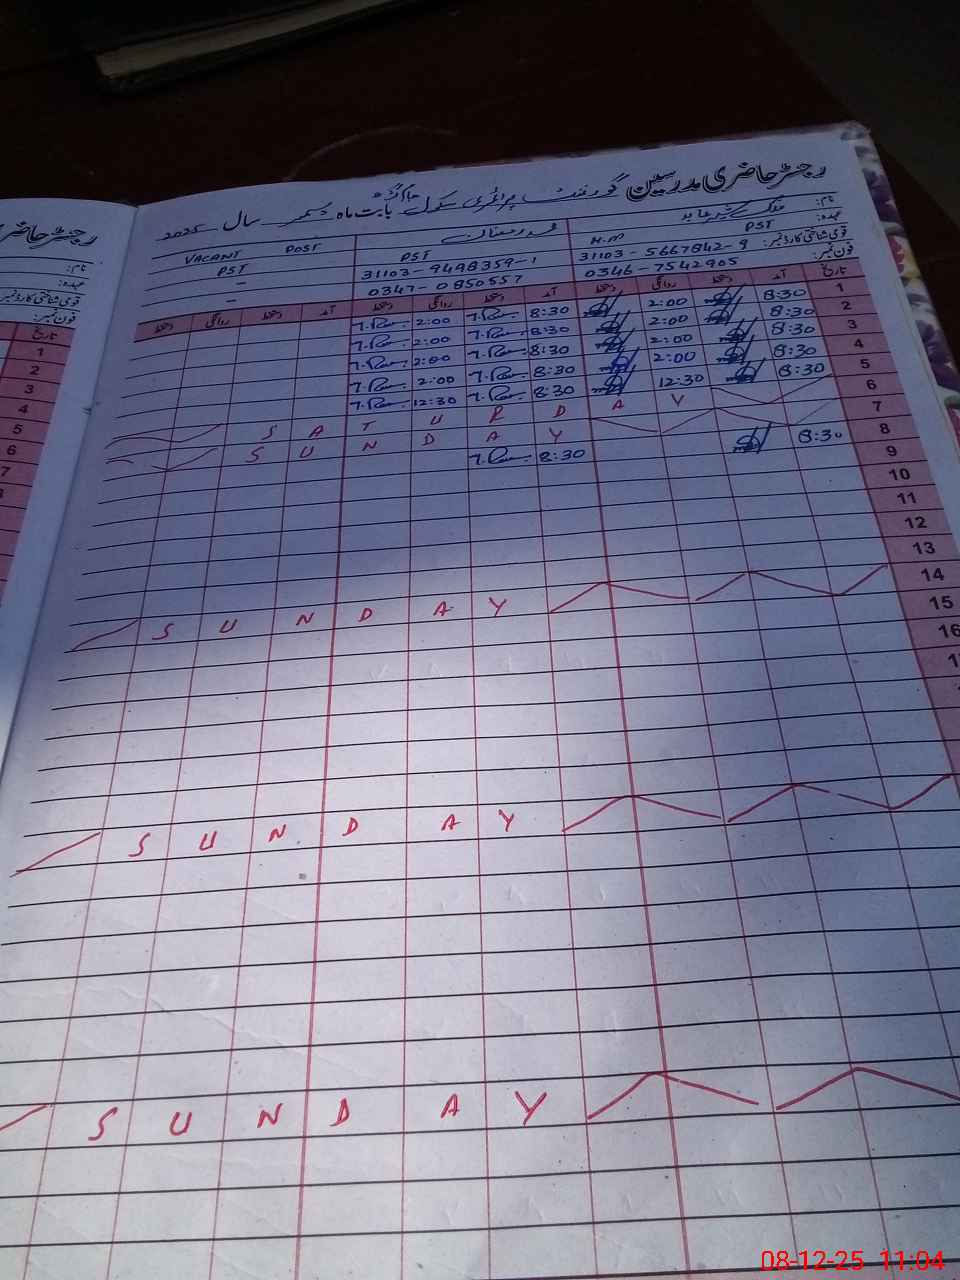 رجسٹر حاضری مدرسین گورنمنٹ پرائمری سکول بابت ماہ دسمبر سال 2025
نام:
عہدہ: PST H.M PST VACANT POST PST
قومی شناختی کارڈ نمبر: 31103-5667842-9 31103-9498359-1 -
فون نمبر: 0346-7542905 0347-0850557 -
تاریخ آمد دستخط روانگی دستخط آمد دستخط روانگی دستخط آمد دستخط روانگی دستخط
1 8:30 2:00 8:30 2:00
2 8:30 2:00 8:30 2:00
3 8:30 2:00 8:30 2:00
4 8:30 2:00 8:30 2:00
5 8:30 12:30 8:30 12:30
6 SATURDAY
7 SUNDAY
8 8:30 8:30
9
10
11
12
13
14 SUNDAY
15
16
SUNDAY
SUNDAY
رجسٹر حاضری
نام:
عہدہ:
قومی شناختی کارڈ نمبر
فون نمبر:
تاریخ
1
2
3
4
5
6
7
08-12-25 11:04